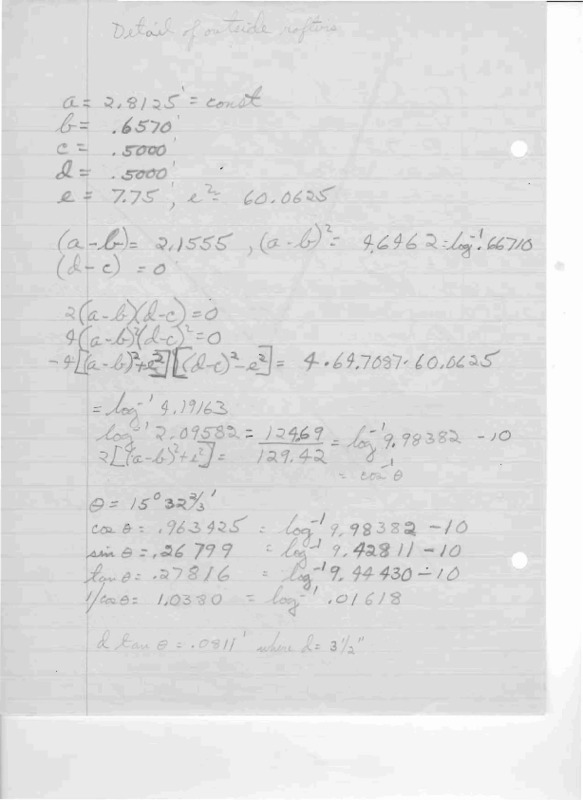 Detail of outside rafters
a = 2.8125' = const
b = .6570'
c = .5000'
d = .5000'
e = 7.75', e² = 60.0625
(a-b) = 2.1555, (a-b)² = 4.6462 = log⁻¹ .66710
(d-c) = 0
2(a-b)(d-c) = 0
4(a-b)²(d-c)² = 0
-4[(a-b)²+e²][(d-c)²-e²] = 4·64.7087·60.0625
= log⁻¹ 4.19163
log⁻¹ 2.09582 = 124.69 = log⁻¹ 9.98382 -10
2[(a-b)²+e²] = 129.42
= cos⁻¹ θ
θ = 15° 32⅔'
cos θ = .963425 = log⁻¹ 9.98382 -10
sin θ = .26799 = log⁻¹ 9.42811 -10
tan θ = .27816 = log⁻¹ 9.44430 -10
1/cos θ = 1.0380 = log⁻¹ .01618
d tan θ = .0811' where d = 3½"